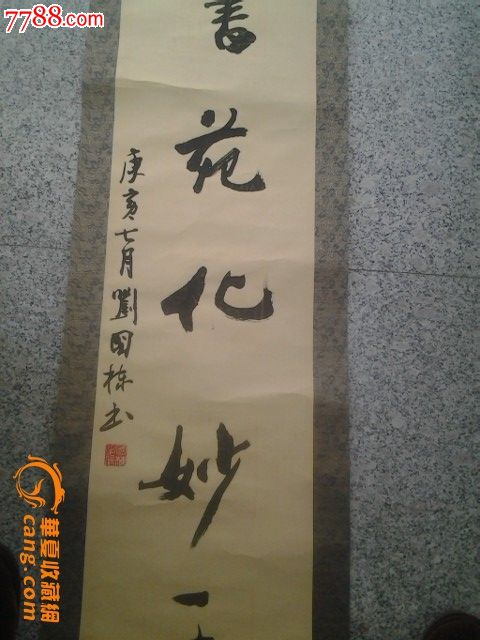 7788.com
苑化妙
庚寅七月劉国栋书
華夏收藏網
cang.com